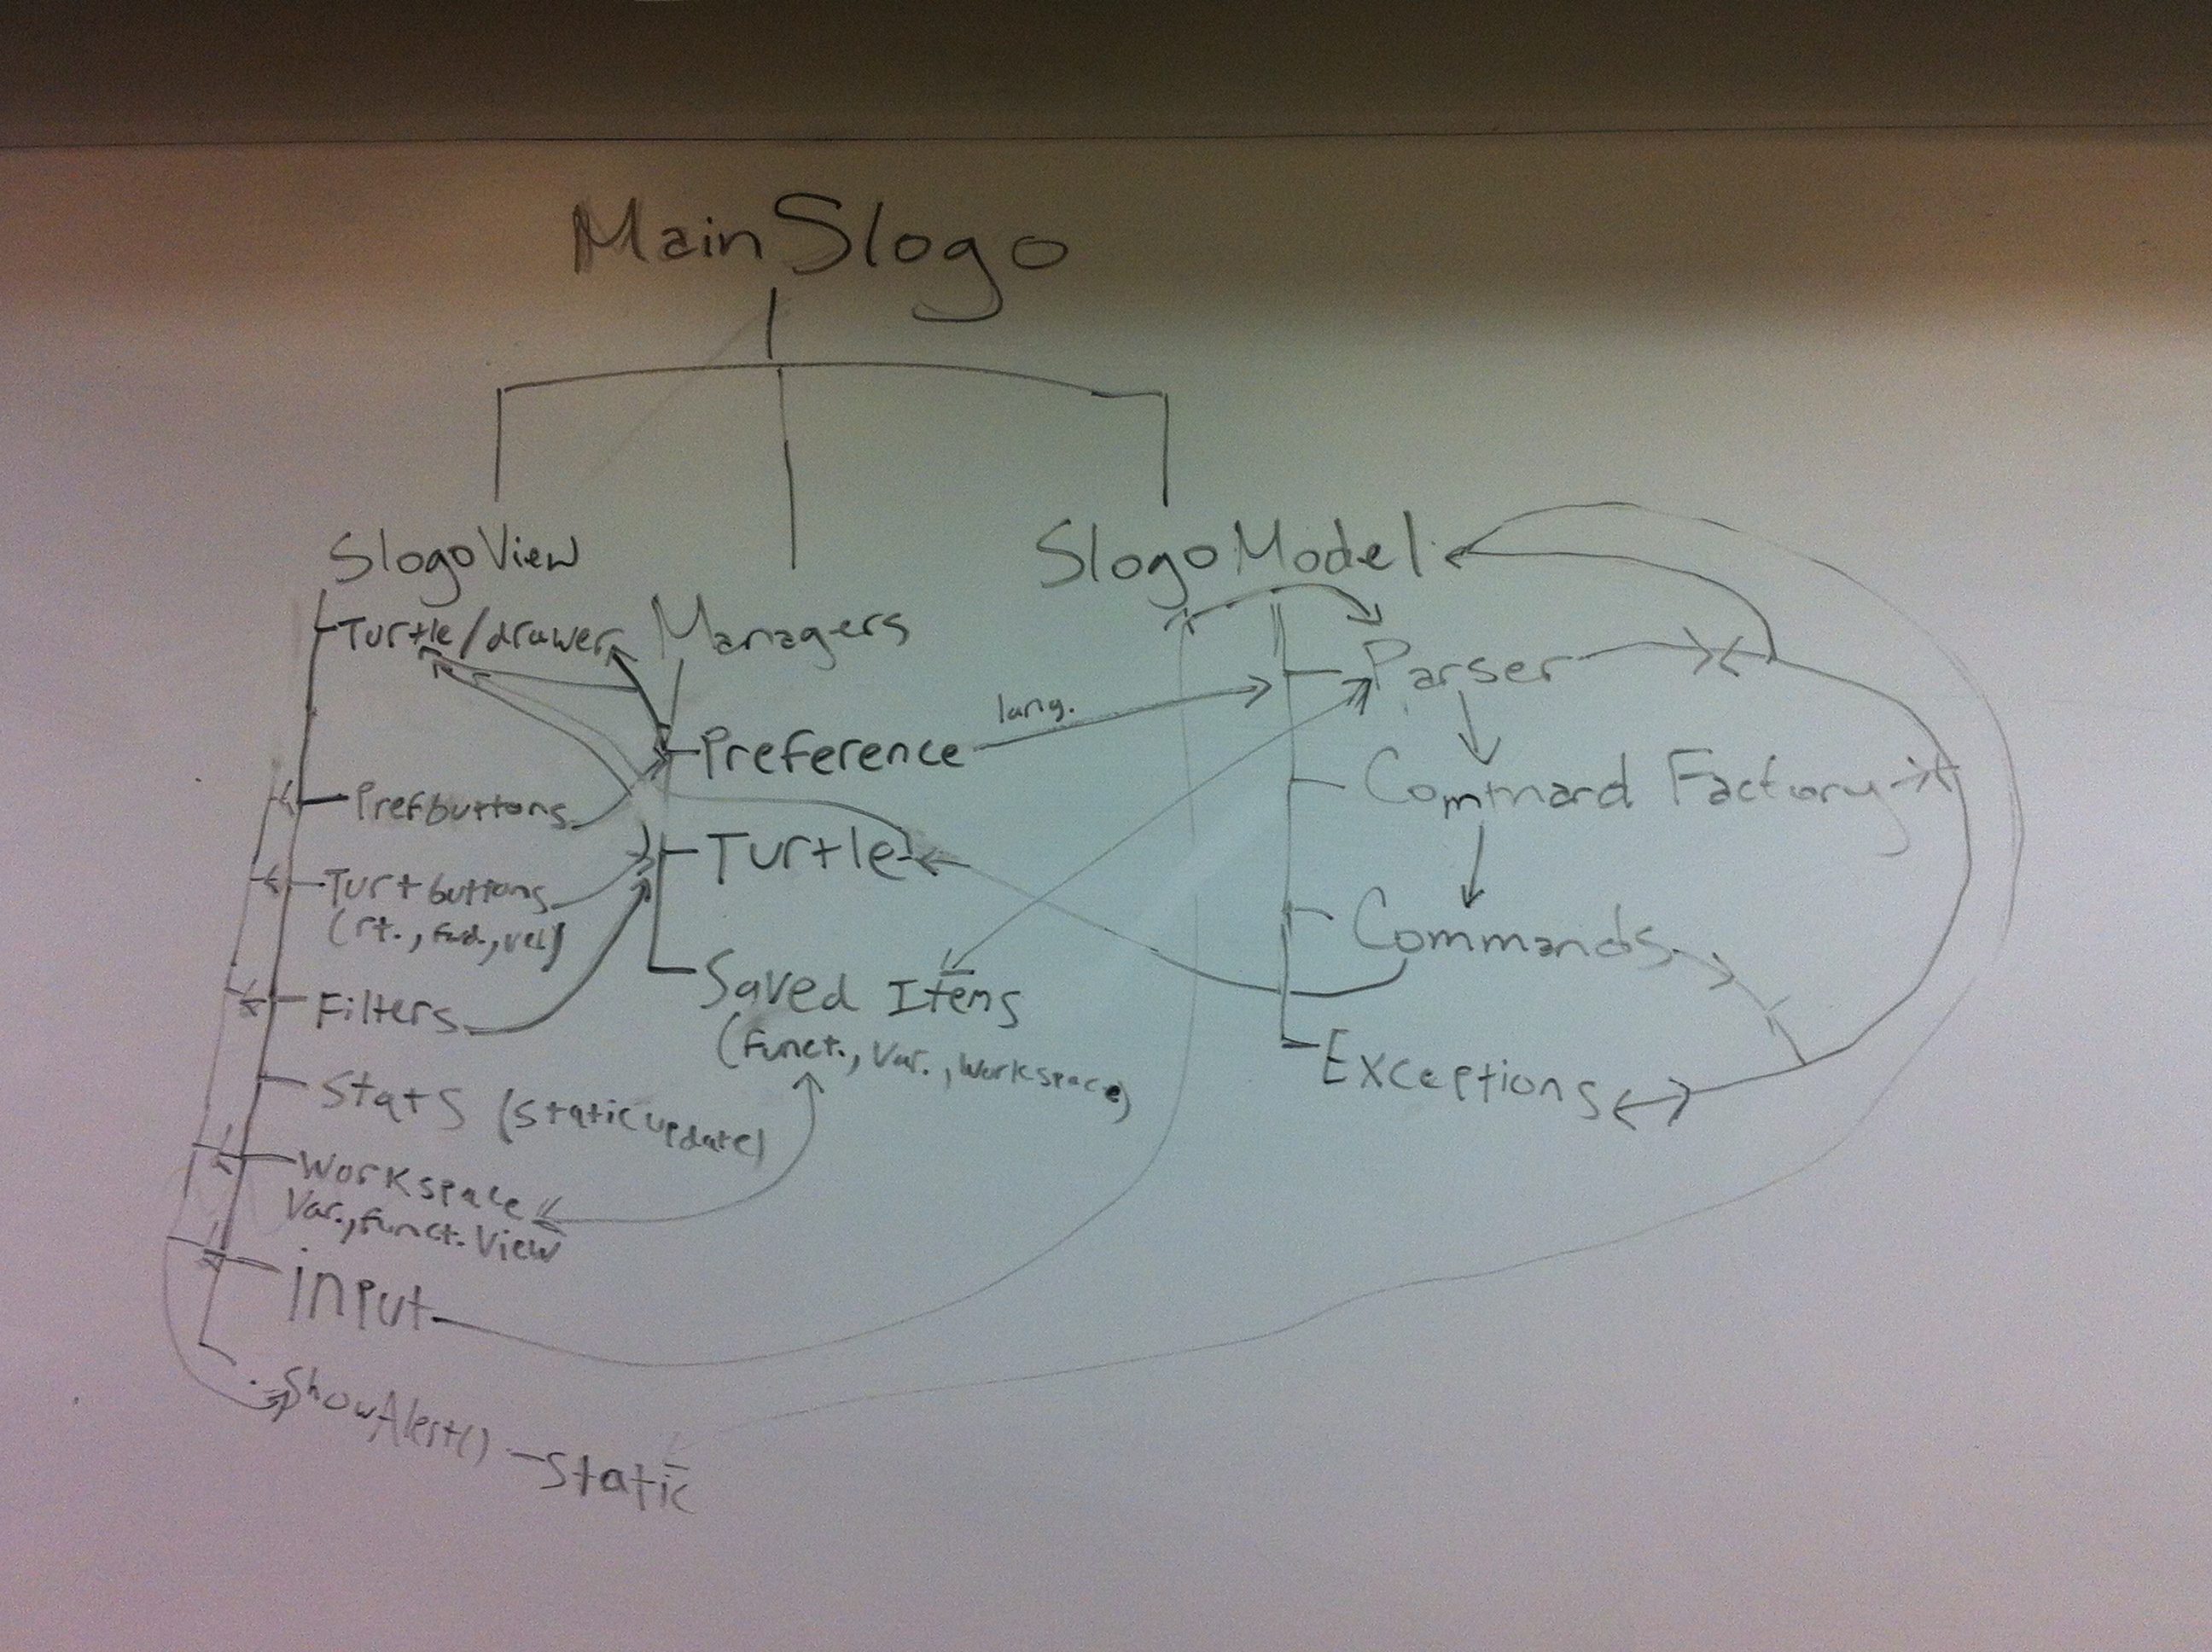 MainSlogo
SlogoView
Turtle/drawer
Prefbuttons
Turtbuttons
(rt., fwd., vel)
Filters
Stats (static update)
Workspace
Var., funct. View
input
ShowAlert() - static
Managers
Preference
lang.
Turtle
Saved Items
(funct., Var., Workspace)
SlogoModel
Parser
Command Factory
Commands
Exceptions